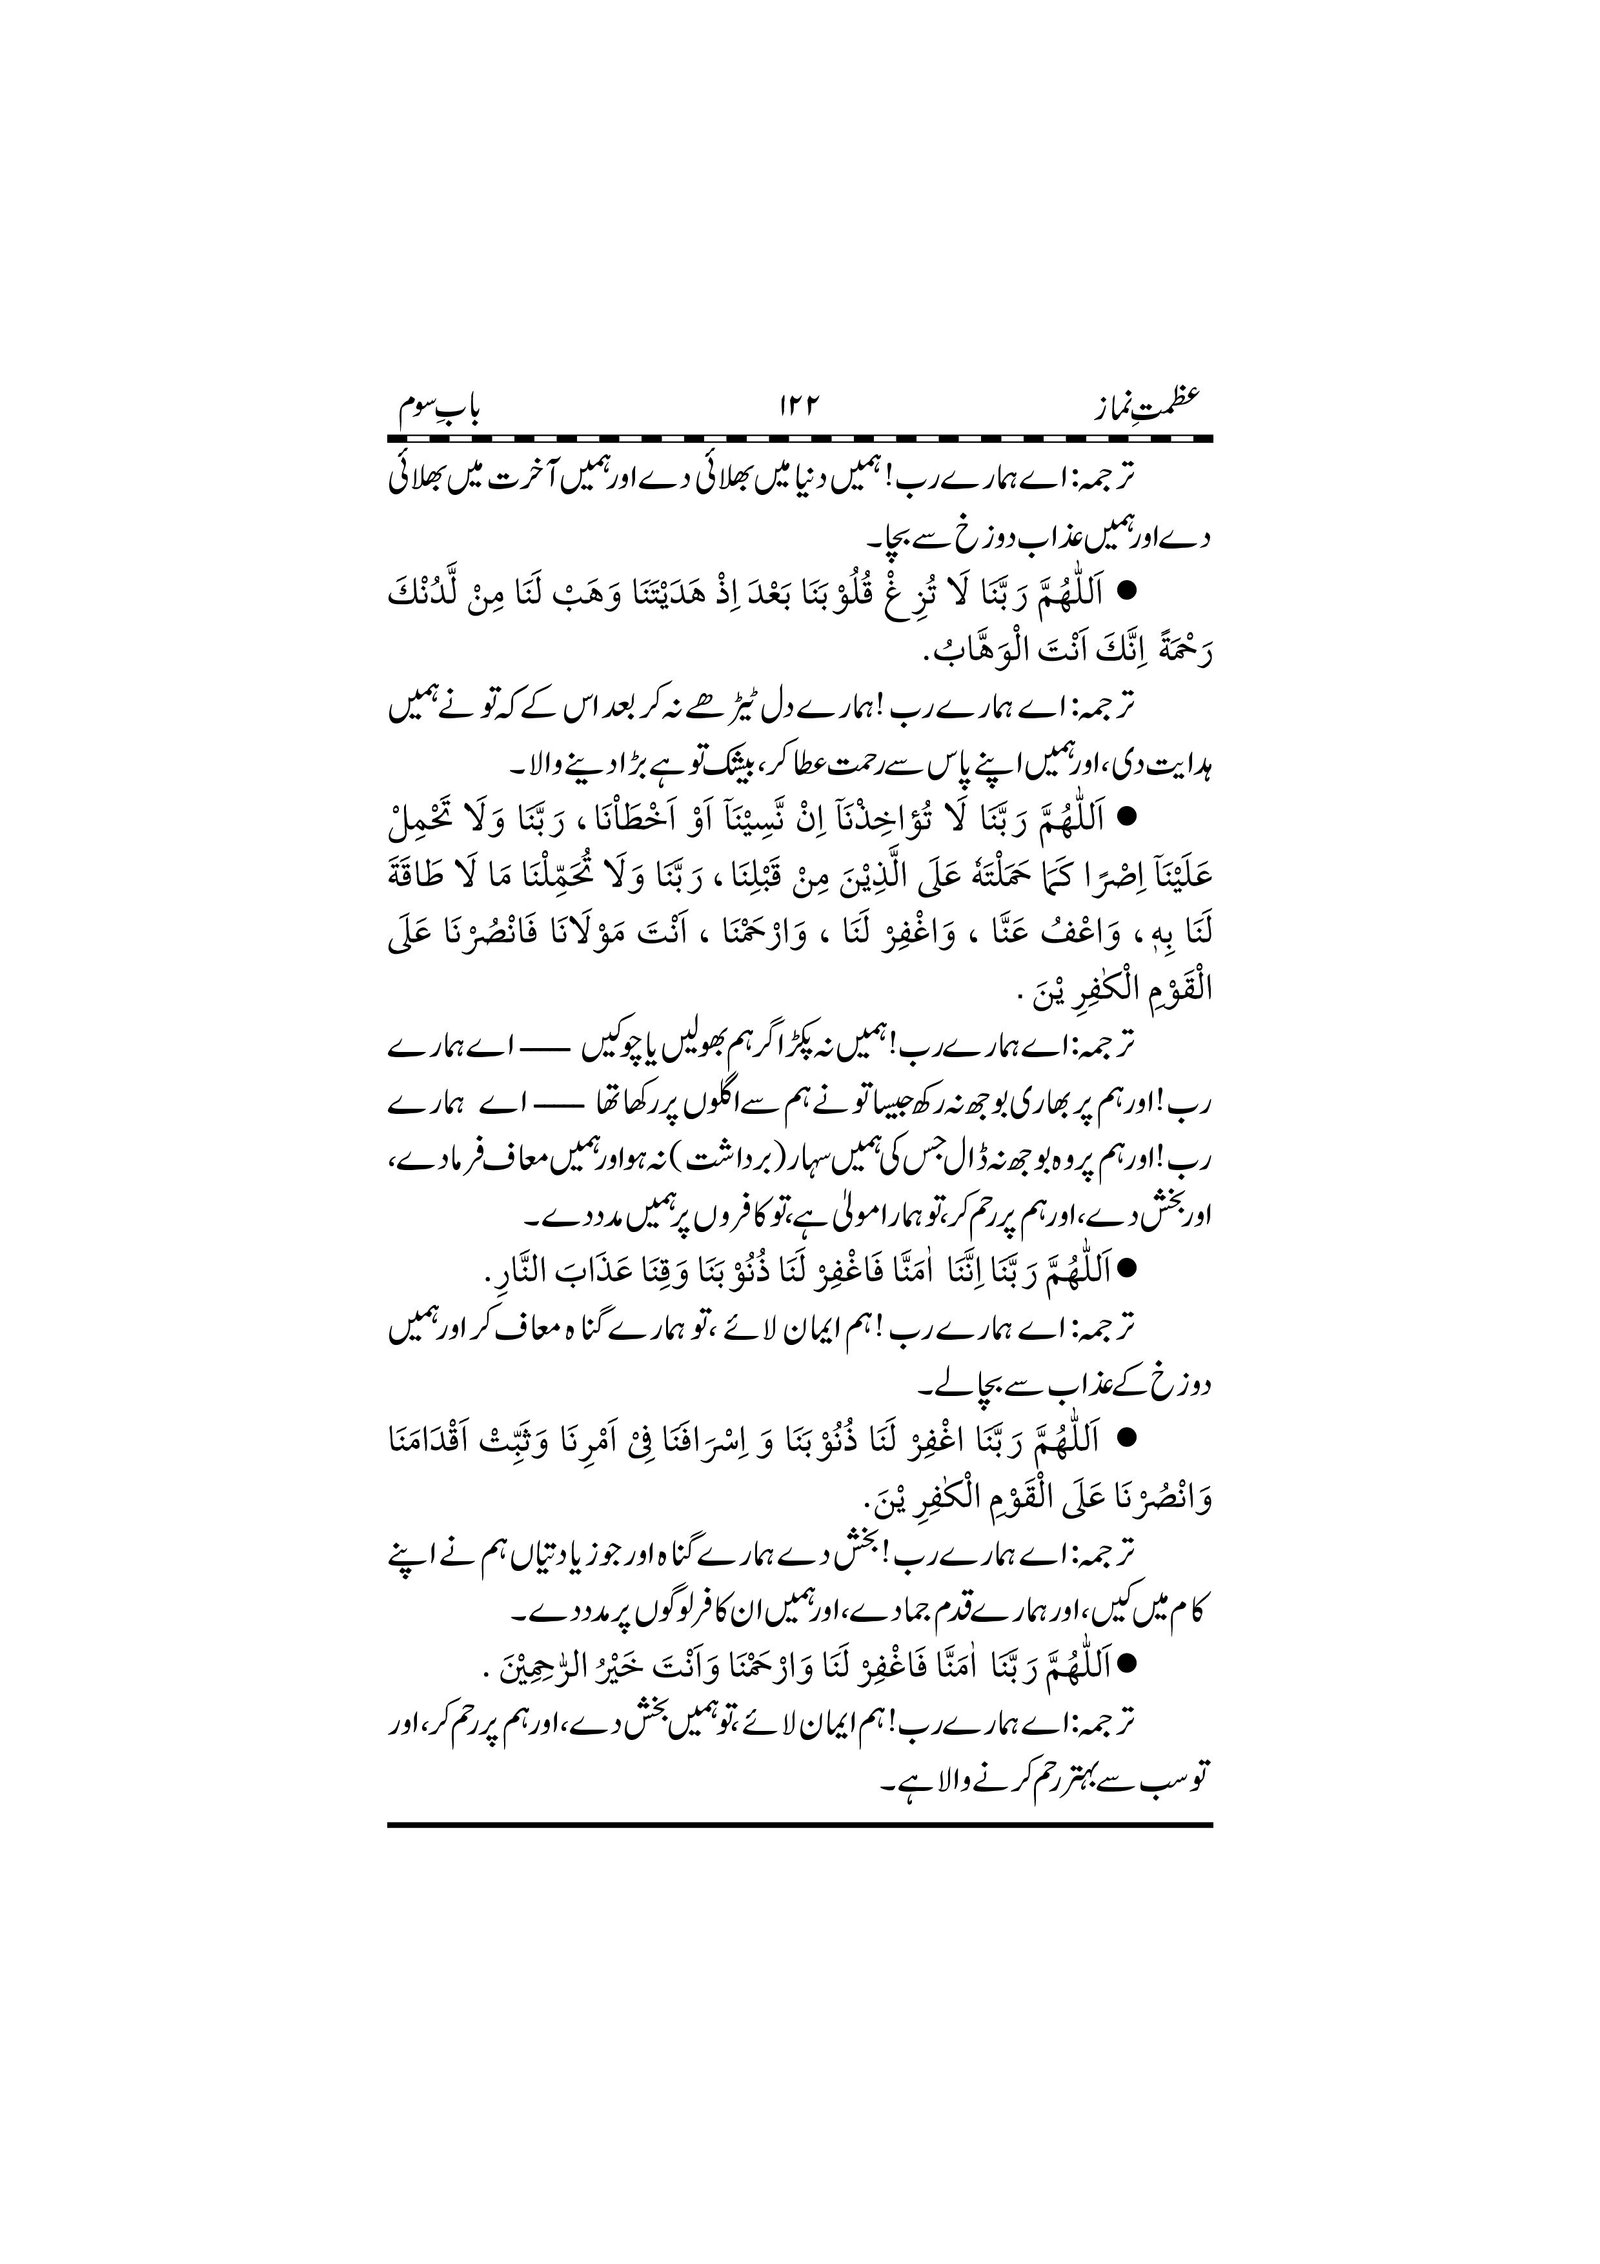 عظمتِ نماز ۱۲۲ بابِ سوم
ترجمہ: اے ہمارے رب! ہمیں دنیا میں بھلائی دے اور ہمیں آخرت میں بھلائی
دے اور ہمیں عذاب دوزخ سے بچا۔
● اَللّٰهُمَّ رَبَّنَا لَا تُزِغْ قُلُوْبَنَا بَعْدَ اِذْ هَدَيْتَنَا وَهَبْ لَنَا مِنْ لَّدُنْكَ
رَحْمَةً اِنَّكَ اَنْتَ الْوَهَّابُ.
ترجمہ: اے ہمارے رب! ہمارے دل ٹیڑھے نہ کر بعد اس کے کہ تو نے ہمیں
ہدایت دی، اور ہمیں اپنے پاس سے رحمت عطا کر، بیشک تو ہے بڑا دینے والا۔
● اَللّٰهُمَّ رَبَّنَا لَا تُؤَاخِذْنَآ اِنْ نَّسِيْنَآ اَوْ اَخْطَاْنَا، رَبَّنَا وَلَا تَحْمِلْ
عَلَيْنَآ اِصْرًا كَمَا حَمَلْتَهٗ عَلَى الَّذِيْنَ مِنْ قَبْلِنَا، رَبَّنَا وَلَا تُحَمِّلْنَا مَا لَا طَاقَةَ
لَنَا بِهٖ، وَاعْفُ عَنَّا، وَاغْفِرْ لَنَا، وَارْحَمْنَا، اَنْتَ مَوْلَانَا فَانْصُرْنَا عَلَى
الْقَوْمِ الْكٰفِرِيْنَ.
ترجمہ: اے ہمارے رب! ہمیں نہ پکڑ اگر ہم بھولیں یا چوکیں —— اے ہمارے
رب! اور ہم پر بھاری بوجھ نہ رکھ جیسا تو نے ہم سے اگلوں پر رکھا تھا —— اے ہمارے
رب! اور ہم پر وہ بوجھ نہ ڈال جس کی ہمیں سہار (برداشت) نہ ہو اور ہمیں معاف فرمادے،
اور بخش دے، اور ہم پر رحم کر، تو ہمارا مولیٰ ہے، تو کافروں پر ہمیں مدد دے۔
● اَللّٰهُمَّ رَبَّنَا اِنَّنَا اٰمَنَّا فَاغْفِرْ لَنَا ذُنُوْبَنَا وَقِنَا عَذَابَ النَّارِ.
ترجمہ: اے ہمارے رب! ہم ایمان لائے، تو ہمارے گناہ معاف کر اور ہمیں
دوزخ کے عذاب سے بچا لے۔
● اَللّٰهُمَّ رَبَّنَا اغْفِرْ لَنَا ذُنُوْبَنَا وَ اِسْرَافَنَا فِیْ اَمْرِنَا وَثَبِّتْ اَقْدَامَنَا
وَانْصُرْنَا عَلَى الْقَوْمِ الْكٰفِرِيْنَ.
ترجمہ: اے ہمارے رب! بخش دے ہمارے گناہ اور جو زیادتیاں ہم نے اپنے
کام میں کیں، اور ہمارے قدم جمادے، اور ہمیں ان کافر لوگوں پر مدد دے۔
● اَللّٰهُمَّ رَبَّنَا اٰمَنَّا فَاغْفِرْ لَنَا وَارْحَمْنَا وَاَنْتَ خَيْرُ الرّٰحِمِيْنَ.
ترجمہ: اے ہمارے رب! ہم ایمان لائے، تو ہمیں بخش دے، اور ہم پر رحم کر، اور
تو سب سے بہتر رحم کرنے والا ہے۔